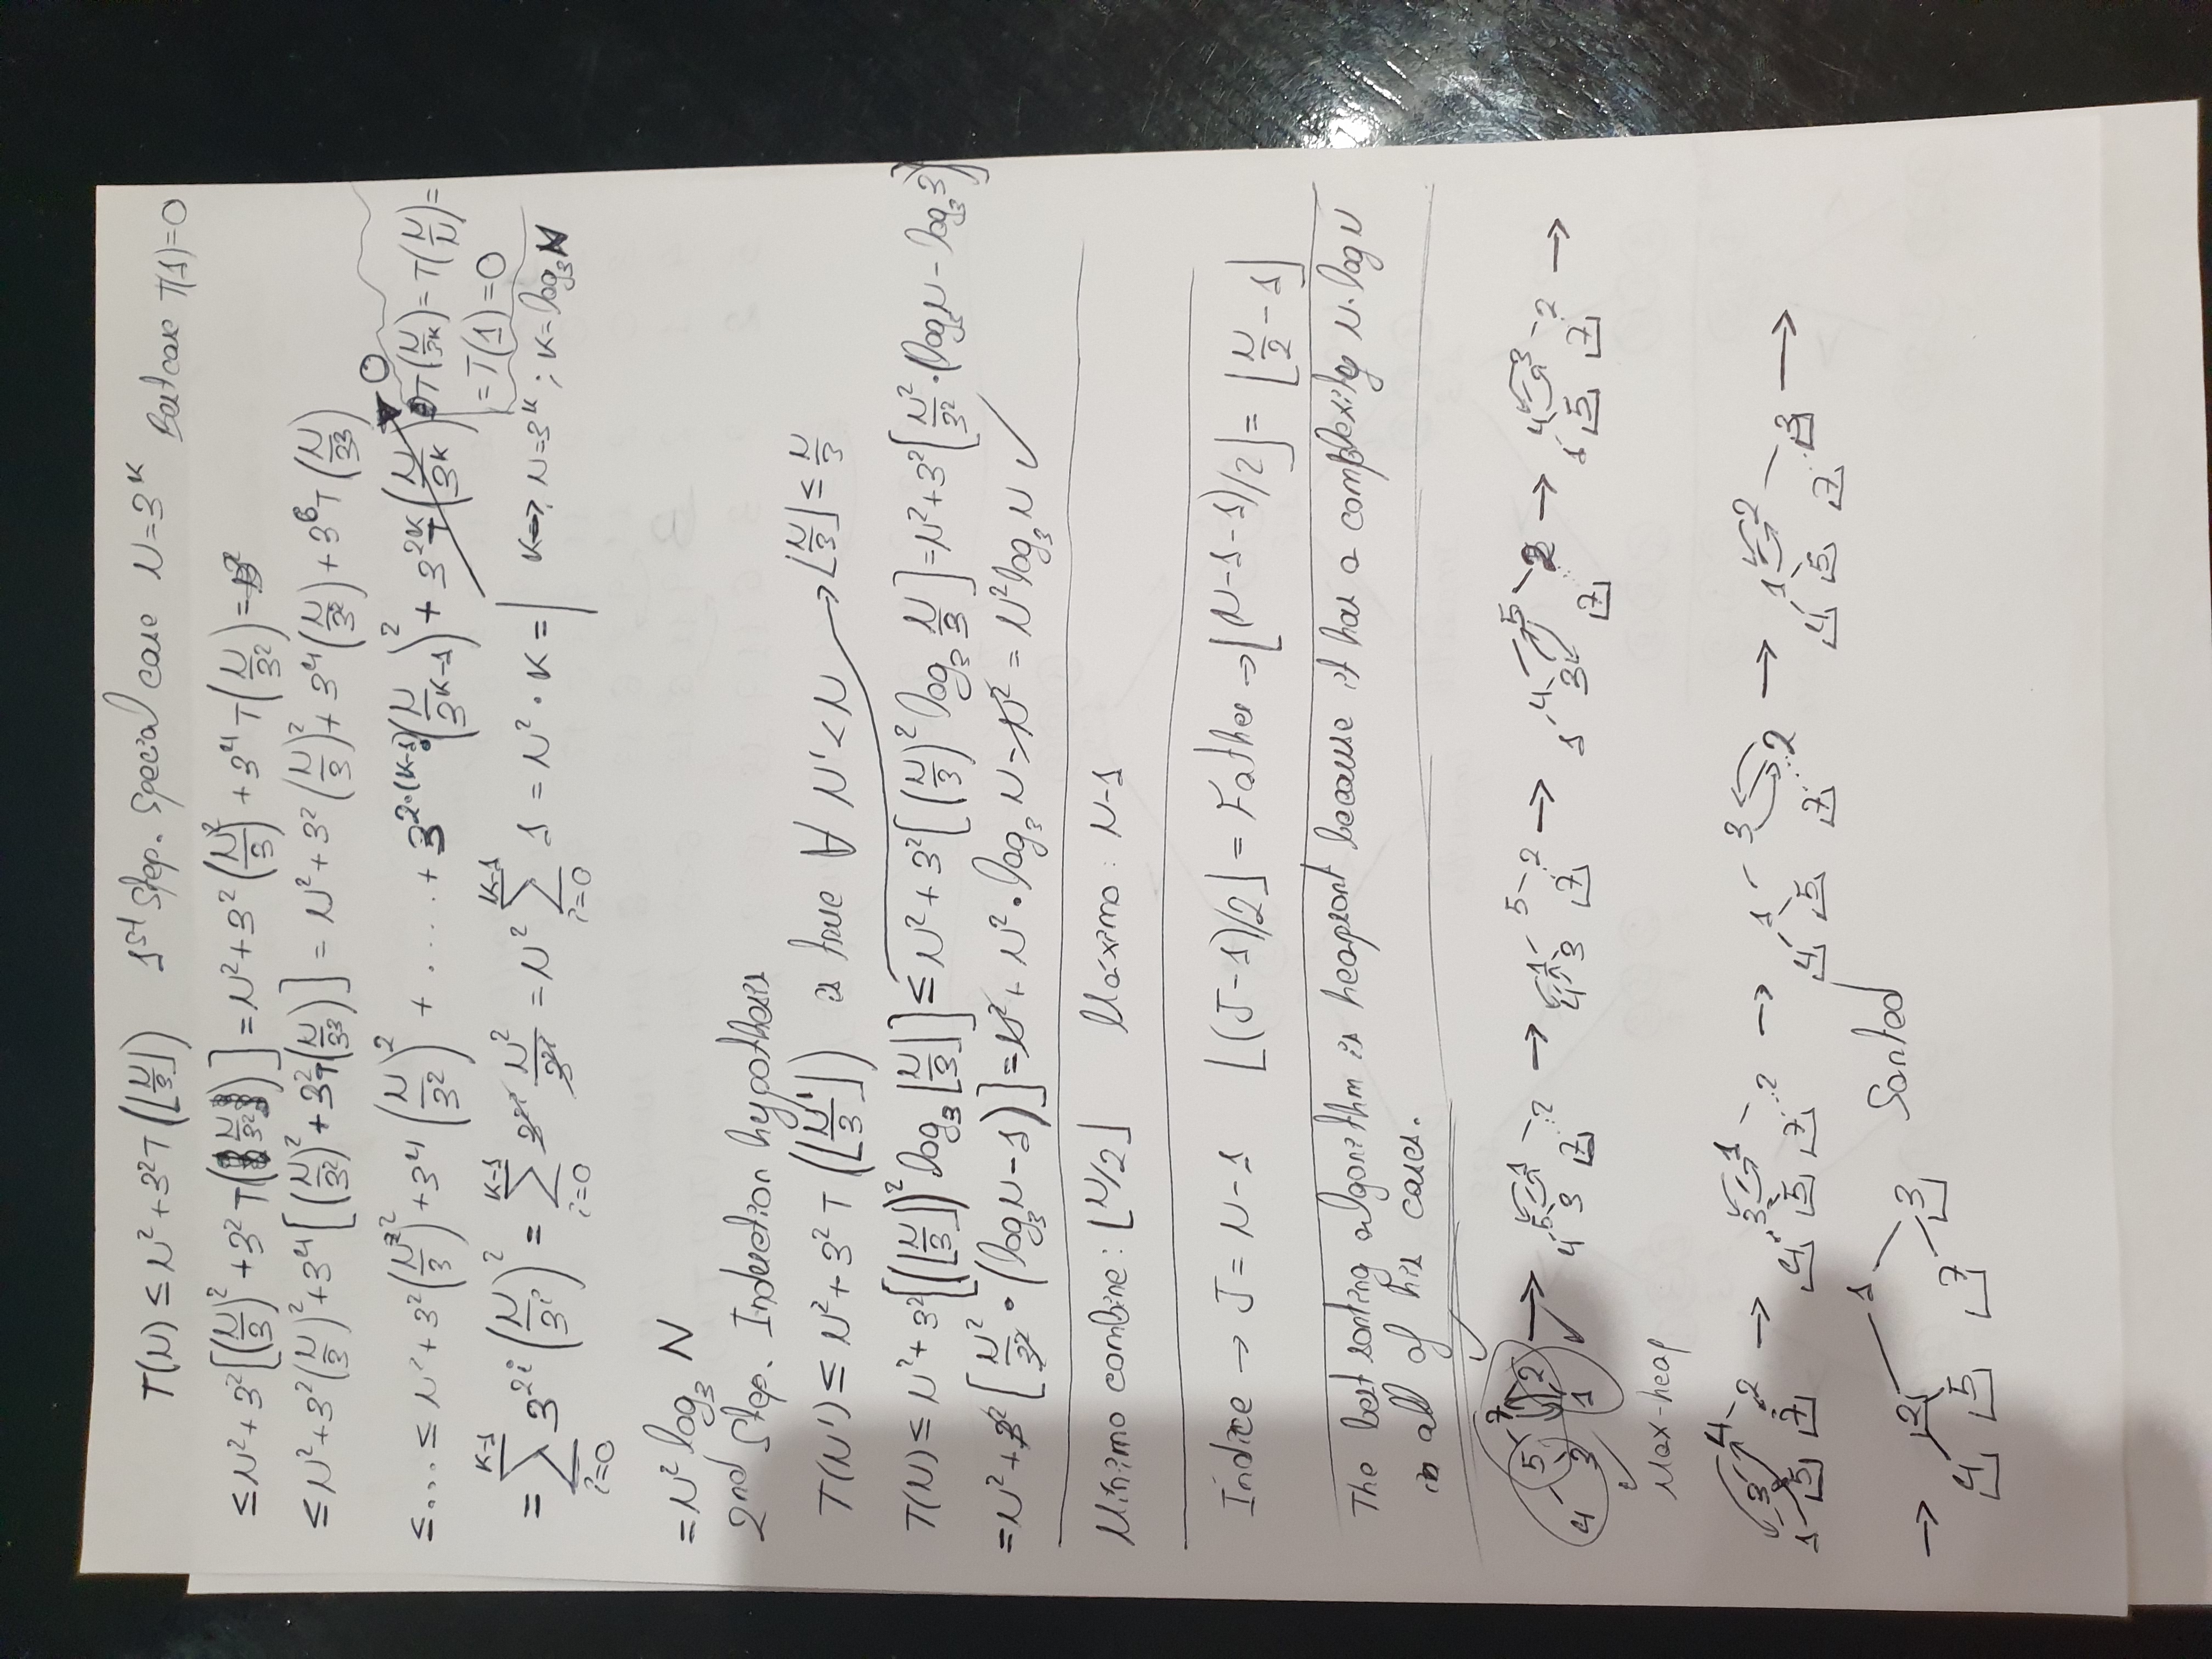 T(N) ≤ N² + 3² T(⌊N/3⌋) 1st Step. Special case N = 3^K Best case T(1) = 0
≤ N² + 3² [(N/3)² + 3² T(N/3²)] = N² + 3² (N/3)² + 3⁴ T(N/3²) =
≤ N² + 3² (N/3)² + 3⁴ [(N/3²)² + 3² T(N/3³)] = N² + 3² (N/3)² + 3⁴ (N/3²) + 3⁶ T(N/3³)
≤ ... ≤ N² + 3² (N/3)² + 3⁴ (N/3²)² + ..... + 3^(2·(K-1)) · (N/3^(K-1))² + 3^(2K) T(N/3^K) 0 T(N/3^K) = T(N/N) =
= T(1) = 0
= ∑_{i=0}^{K-1} 3^(2i) (N/3^i)² = ∑_{i=0}^{K-1} 3^(2i) N²/3^(2i) = N² ∑_{i=0}^{K-1} 1 = N² · K = | K → N = 3^K ; K = log₃ N
= N² log₃ N
2nd Step. Induction hypothesis
T(N') ≤ N² + 3² T(⌊N'/3⌋) is true ∀ N' < N → ⌊N/3⌋ ≤ N/3
T(N) ≤ N² + 3² [(⌊N/3⌋)² log₃ ⌊N/3⌋] ≤ N² + 3² [(N/3)² log₃ N/3] = N² + 3² [N²/3² · (log₃ N - log₃ 3)]
= N² + 3² [N²/3² · (log₃ N - 1)] = N² + N² · log₃ N - N² = N² log₃ N ✓
Mínimo combine: ⌊N/2⌋ Máximo: N-1
Índice → J = N-1 ⌊(J-1)/2⌋ = Father → ⌊(N-1-1)/2⌋ = ⌊N/2 - 1⌋
The best sorting algorithm is heapsort because it has a complexity N·log N
in all of his cases.
7 1 5 5 3
5 2 → 5 2 → 1 2 → 4 2 → 4 2 →
4 3 1 4 3 7 4 3 7 1 3 7 1 5 7
Max-heap
4 1 3 2
3 2 → 3 2 → 1 2 → 1 3 →
1 5 7 4 5 7 4 5 7 4 5 7
1 Sorted
→ 2 3
4 5 7